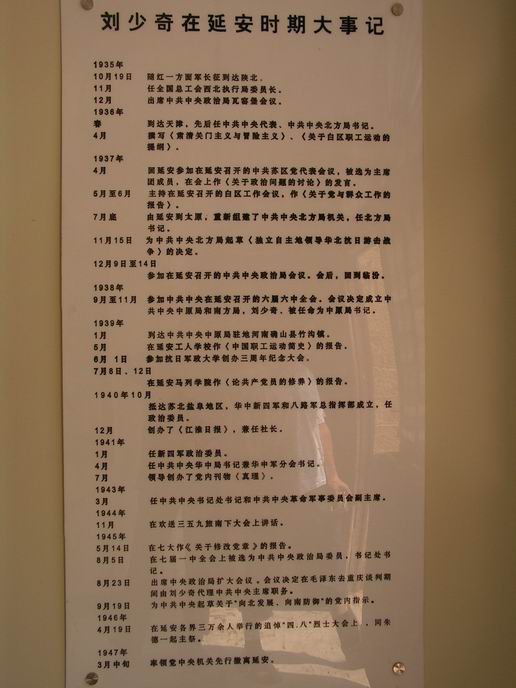 刘少奇在延安时期大事记
1935年
10月19日 随红一方面军长征到达陕北。
11月 任全国总工会西北执行局委员长。
12月 出席中共中央政治局瓦窑堡会议。
1936年
春 到达天津，先后任中共中央代表、中共中央北方局书记。
4月 撰写《肃清关门主义与冒险主义》、《关于白区职工运动的
提纲》。
1937年
4月 回延安参加在延安召开的中共苏区党代表会议，被选为主席
团成员，在会上作《关于政治问题的讨论》的发言。
5月至6月 主持在延安召开的白区工作会议，作《关于党与群众工作的
报告》。
7月底 由延安到太原，重新组建了中共中央北方局机关，任北方局
书记。
11月15日 为中共中央北方局起草《独立自主地领导华北抗日游击战
争》的决定。
12月9日至14日
参加在延安召开的中共中央政治局会议。会后，回到临汾。
1938年
9月至11月 参加中共中央在延安召开的六届六中全会。会议决定成立中
共中央中原局和南方局，刘少奇、被任命为中原局书记。
1939年
1月 到达中共中央中原局驻地河南确山县竹沟镇。
5月 在延安工人学校作《中国职工运动简史》的报告。
6月 1日 参加抗日军政大学创办三周年纪念大会。
7月8日、12日
在延安马列学院作《论共产党员的修养》的报告。
1940年10月
抵达苏北盐阜地区，华中新四军和八路军总指挥部成立，任
政治委员。
12月 创办了《江淮日报》，兼任社长。
1941年
1月 任新四军政治委员。
4月 任中共中央华中局书记兼华中军分会书记。
7月 领导创办了党内刊物《真理》。
1943年
3月 任中共中央书记处书记和中共中央革命军事委员会副主席。
1944年
11月 在欢送三五九旅南下大会上讲话。
1945年
5月14日 在七大作《关于修改党章》的报告。
8月5日 在七届一中全会上被选为中共中央政治局委员，书记处书
记。
8月23日 出席中央政治局扩大会议。会议决定在毛泽东去重庆谈判期
间由刘少奇代理中共中央主席职务。
9月19日 为中共中央起草关于"向北发展、向南防御"的党内指示。
1946年
4月19日 在延安各界三万余人举行的追悼"四.八"烈士大会上，同朱
德一起主祭。
1947年
3月中旬 率领党中央机关先行撤离延安。